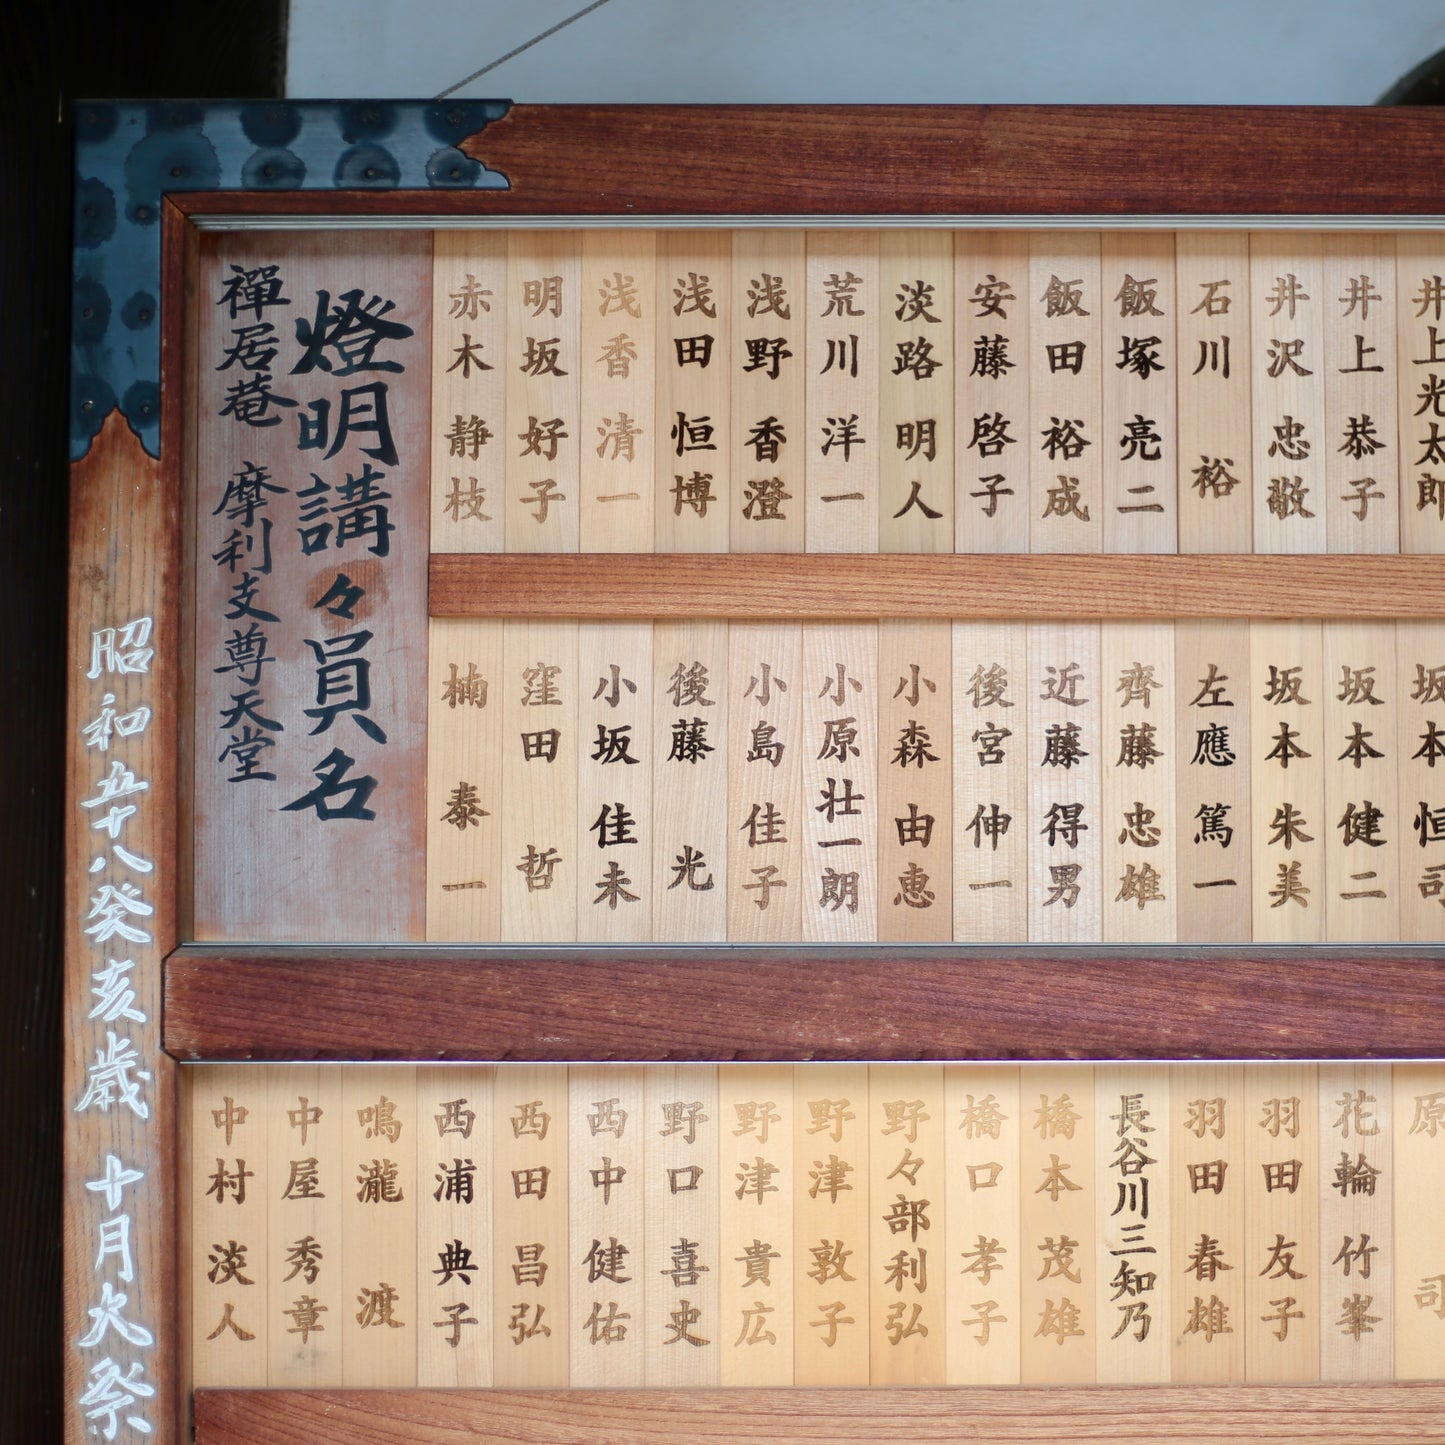 昭和五十八癸亥歳 十月火祭
燈明講々員名
禪居菴 摩利支尊天堂
赤木 静枝
明坂 好子
浅香 清一
浅田 恒博
浅野 香澄
荒川 洋一
淡路 明人
安藤 啓子
飯田 裕成
飯塚 亮二
石川 裕
井沢 忠敬
井上 恭子
井上光太郎
楠 泰一
窪田 哲
小坂 佳未
後藤 光
小島 佳子
小原壮一朗
小森 由恵
後宮 伸一
近藤 得男
齊藤 忠雄
左應 篤一
坂本 朱美
坂本 健二
坂本 恒司
中村 淡人
中屋 秀章
鳴瀧 渡
西浦 典子
西田 昌弘
西中 健佑
野口 喜史
野津 貴広
野津 敦子
野々部利弘
橋口 孝子
橋本 茂雄
長谷川三知乃
羽田 春雄
羽田 友子
花輪 竹峯
原 司